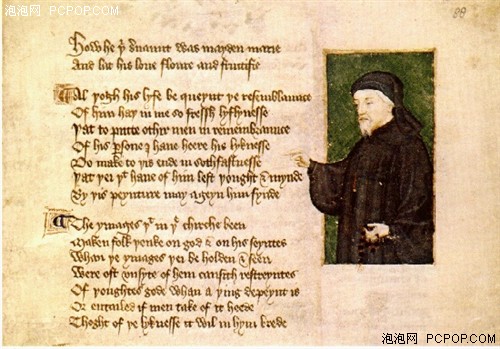 泡泡网 PCPOP.COM
88
泡泡网 PCPOP.COM
How he þi seruaunt was mayden marie
And lat his loue floure and fructifie
Al þogh his lyfe be queynt þe resemblaunce
Of him haþ in me so fressh lyflynesse
Þat to putte othir men in remembraunce
Of his persone I haue heere his lyknesse
Do make to þis ende in sothfastnesse
Þat þei þt haue of him left þought & mynde
By þis peynture may ageyn him fynde
The ymages þt in þe chirche been
Maken folk þenke on god & on his seyntes
Whan þe ymages þei beholden & seen
Were oft vnsyte of hem causith restreyntes
Of þoughtes gode whan a þing depeynt is
Or entailed if men take of it heede
Thoght of þe lyknesse it wil in hym brede
泡泡网 PCPOP.COM